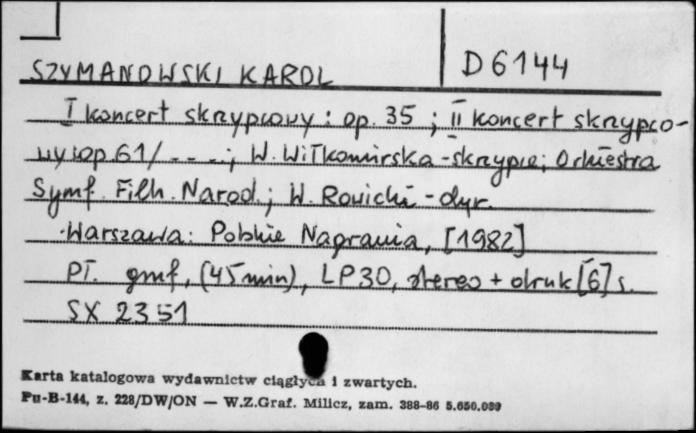 SZYMANOWSKI KAROL
D 6144
I koncert skrzypcowy : op. 35 ; II koncert skrzypco-
wy : op. 61 / _ _ _ . ; W. Wiłkomirska - skrzypce ; Orkiestra
Symf. Filh. Narod. ; W. Rowicki - dyr.
Warszawa : Polskie Nagrania, [1982]
Pł. gmf, (45 min), LP 30, stereo + druk [6] s.
SX 2351
Karta katalogowa wydawnictw ciągłych i zwartych.
Pu-B-144, z. 228/DW/ON — W.Z.Graf. Milicz, zam. 388-86 5.650.000